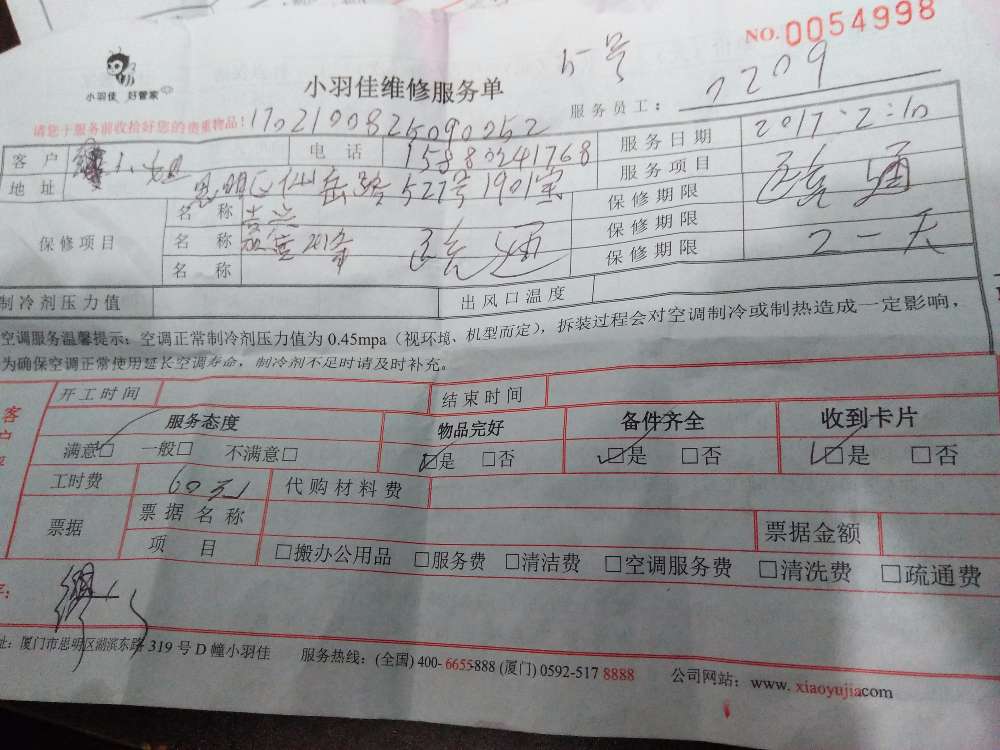 NO. 0054998
小羽佳 好管家
小羽佳维修服务单
服务员工: 2209
请您于服务前收拾好您的贵重物品! 1702100825090252
客户 小姐 电话 15880241768 服务日期 2017.2.10
地址 思明区仙岳路527号1901室 服务项目 疏通
保修项目 名称 保修期限
名称 疏通 保修期限
名称 保修期限 一天
制冷剂压力值 出风口温度
空调服务温馨提示: 空调正常制冷剂压力值为 0.45mpa (视环境、机型而定), 拆装过程会对空调制冷或制热造成一定影响,
为确保空调正常使用延长空调寿命, 制冷剂不足时请及时补充。
客户 开工时间 结束时间
服务态度 物品完好 备件齐全 收到卡片
满意□ 一般□ 不满意□ □是 □否 □是 □否 □是 □否
工时费 60元 代购材料费
票据 票据名称 票据金额
项目 □搬办公用品 □服务费 □清洁费 □空调服务费 □清洗费 □疏通费
址: 厦门市思明区湖滨东路 319 号 D 幢小羽佳 服务热线: (全国) 400-6655-888 (厦门) 0592-517 8888 公司网站: www. xiaoyujia.com